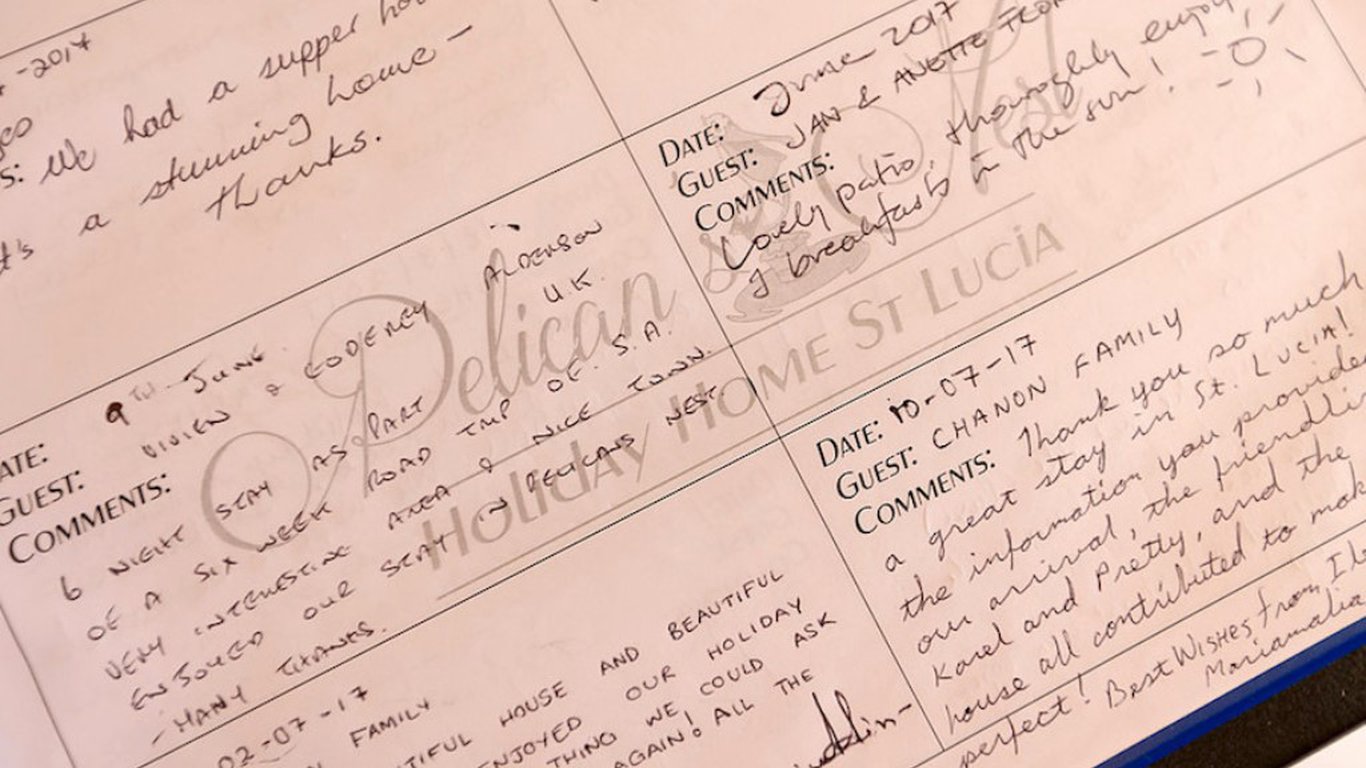 -2014
We had a supper
a stunning home -
thanks.
DATE: June 2017
GUEST: JAN & ANETTE FROM
COMMENTS:
Lovely patio, thoroughly enjoy
breakfasts in the sun!
Pelican's Nest
Holiday HOME ST LUCIA
ATE: 9TH JUNE.
GUEST: VIVIEN & GODFREY ALDERSON
U.K.
COMMENTS:
6 NIGHT STAY AS PART
OF A SIX WEEK ROAD TRIP OF S.A.
VERY INTERESTING AREA & NICE TOWN.
ENJOYED OUR STAY IN PELICANS NEST.
- MANY THANKS.
DATE: 10-07-17
GUEST: CHANON FAMILY
COMMENTS: Thank you so much
a great stay in St. LUCIA!
the information you provide
our arrival, the friendli
Karel and Pretty, and the
house all contributed to mak
perfect! Best Wishes from,
Mariamalia
02-07-17
FAMILY
TIFUL HOUSE AND BEAUTIFUL
ENJOYED OUR HOLIDAY
THING WE COULD ASK
AGAIN! ALL THE